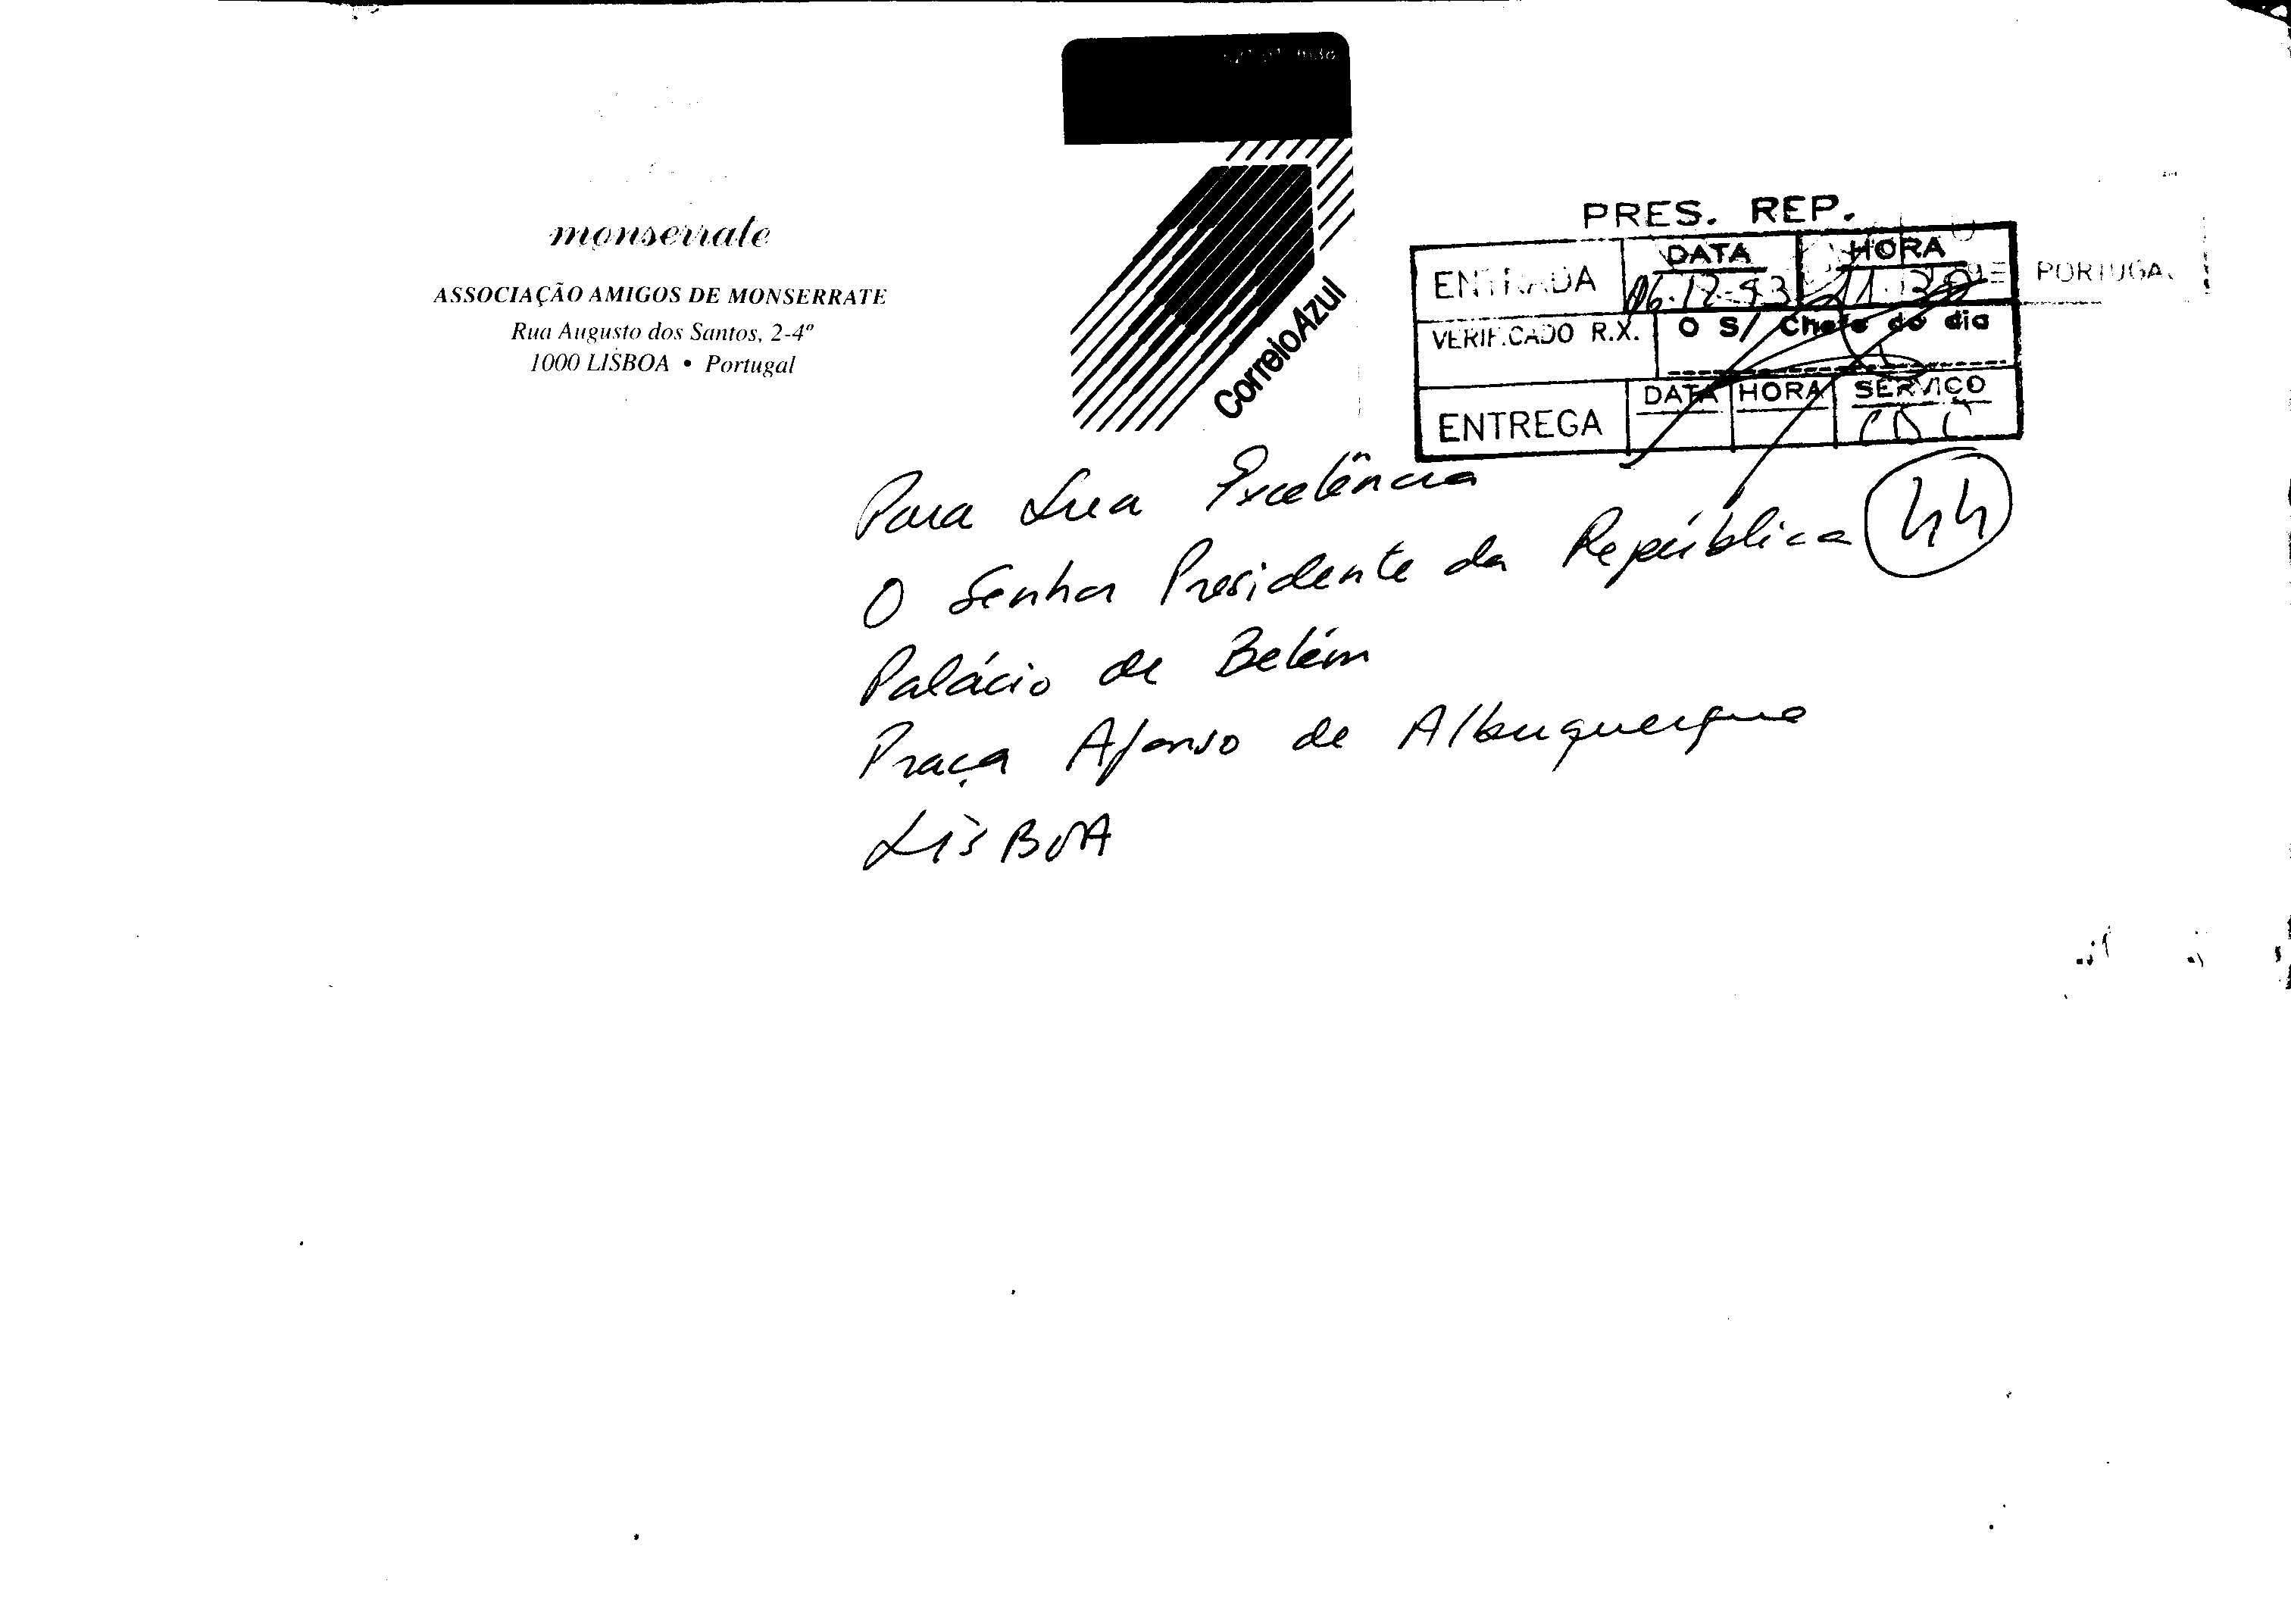 monserrate
ASSOCIAÇÃO AMIGOS DE MONSERRATE
Rua Augusto dos Santos, 2-4º
1000 LISBOA • Portugal
CorreioAzul
PRES. REP.
ENTRADA DATA 06.12.93 HORA 11.30
PORTUGAL
VERIFICADO R.X. O S/ Chefe do dia
ENTREGA DATA HORA SERVIÇO
Para Sua Excelência
O Senhor Presidente da República 44
Palácio de Belém
Praça Afonso de Albuquerque
LISBOA